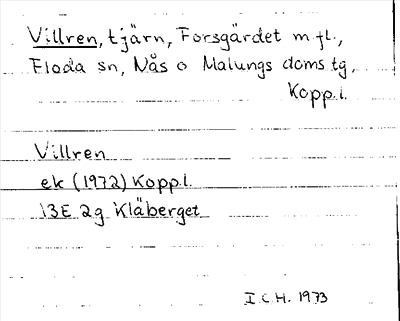 Villren, tjärn, Forsgärdet m.fl.,
Floda sn, Nås o Malungs doms tg,
Kopp.l.
Villren
ek (1972) Kopp.l.
13E 2g Kläberget
I.C.H. 1973